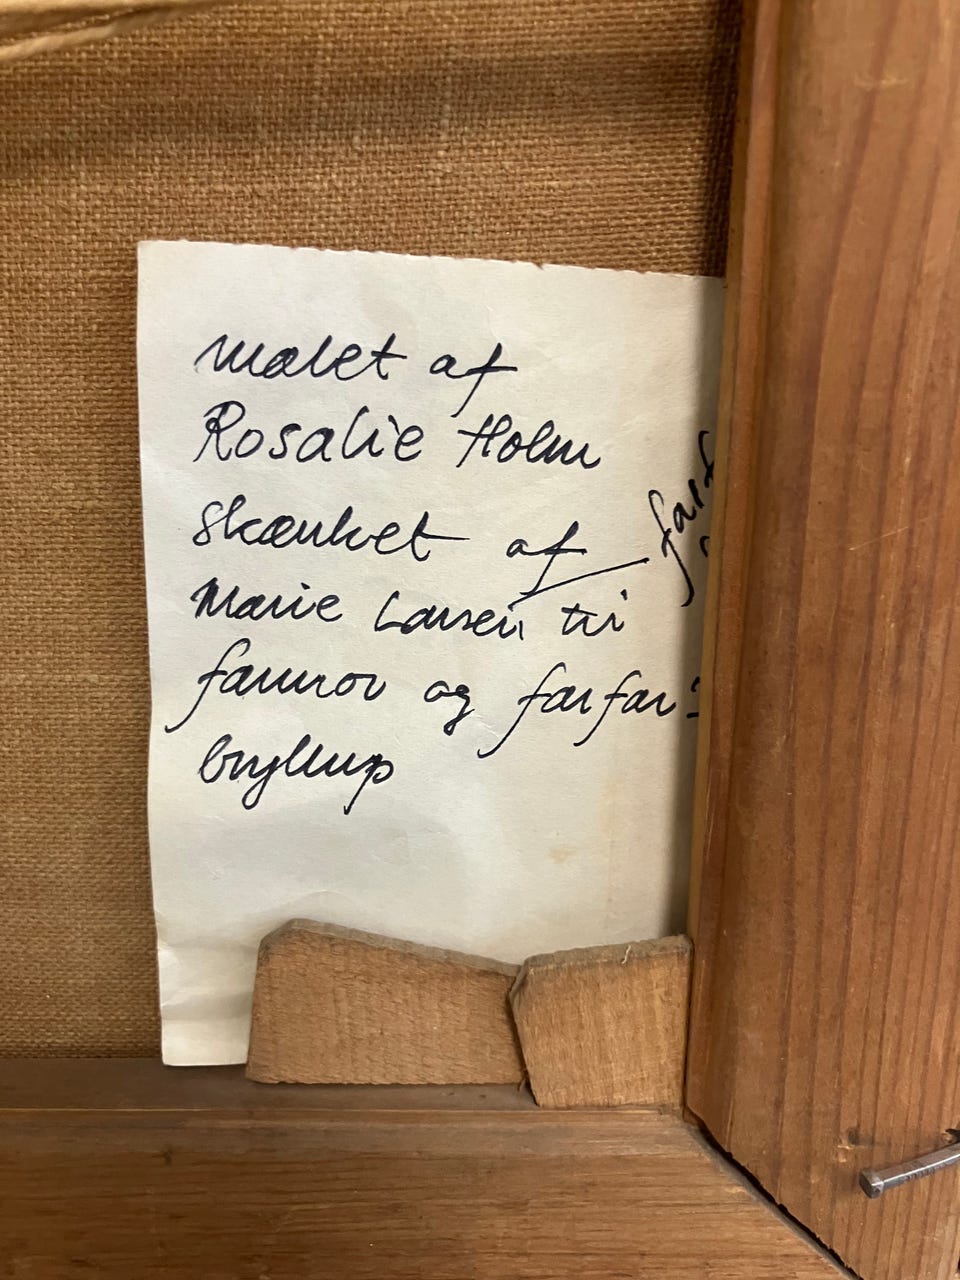 malet af
Rosalie Holm
skænket af
Marie Larsen til
farmor og farfars
bryllup